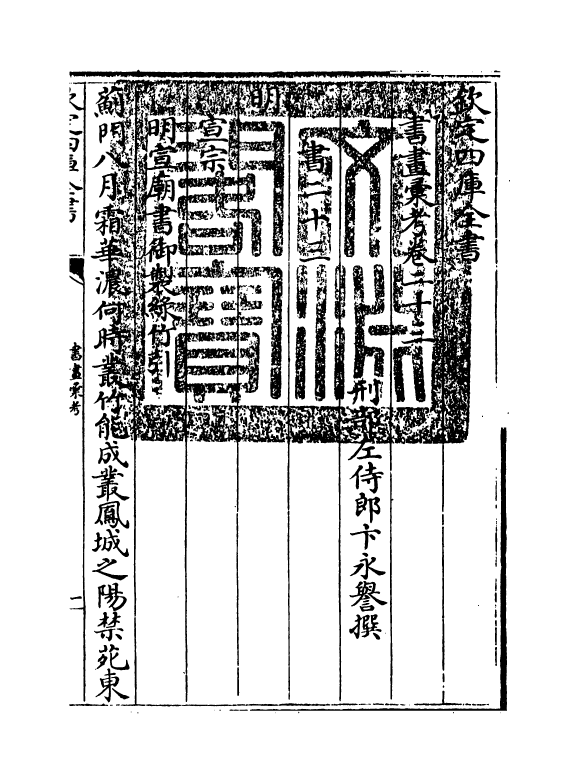 欽定四庫全書
書畫彙考卷二十三
刑部左侍郎卞永譽撰
書二十三
明
宣宗
明宣廟書御製綠竹引
薊門八月霜華濃何時叢竹能成叢鳳城之陽禁苑東
欽定四庫全書
書畫彙考
一
文淵閣寶